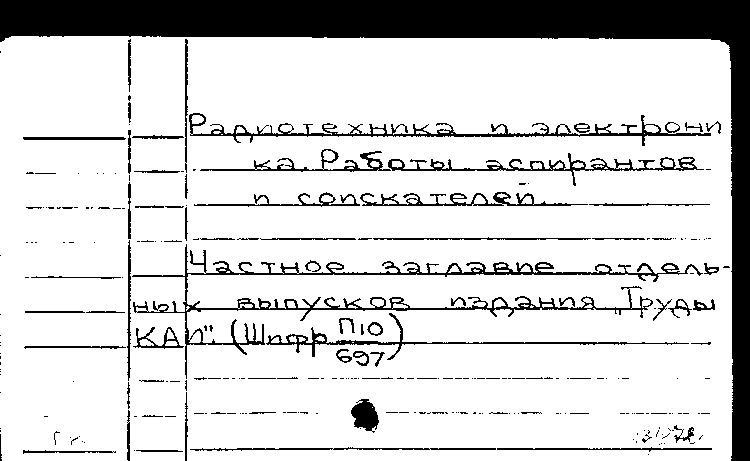 Радиотехника и электрони
ка. Работы аспирантов
и соискателей.
Частное заглавие отдель-
ных выпусков издания „Труды
КАИ". (Шифр П10/697)